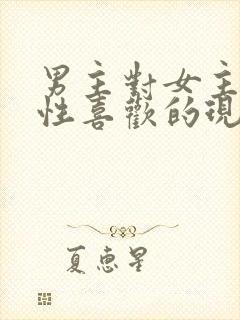 男主對女主
性喜歡的現
夏惠星